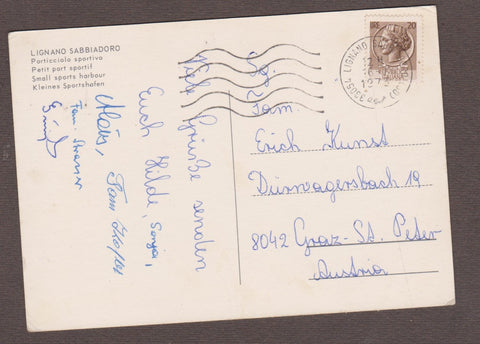 LIGNANO SABBIADORO
Porticciolo sportivo
Petit port sportif
Small sports harbour
Kleines Sportshafen
Viele Grüße senden
Euch Hilde, Sonja,
Alois, Fam.
Fam.
Fam.
Erich Kunst
Dürwagersbach 19
8042 Graz-St. Peter
Austria
20
LIGNANO